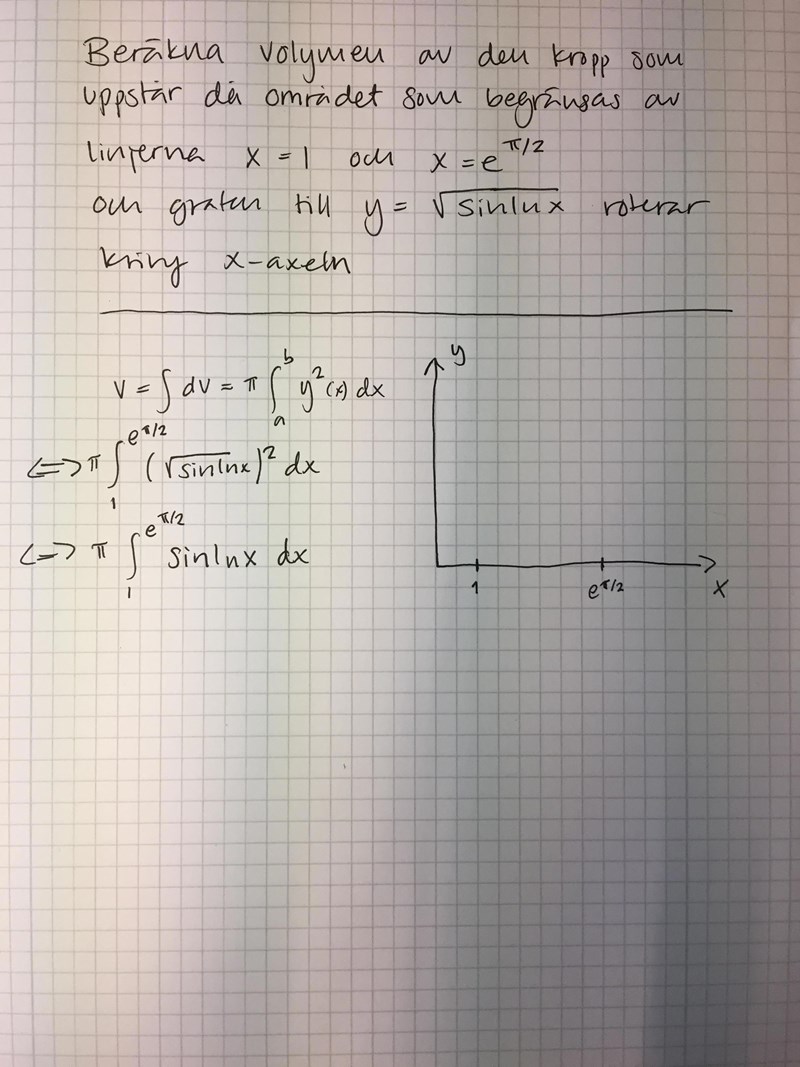 Beräkna volymen av den kropp som
uppstår då området som begränsas av
linjerna x = 1 och x = e^π/2
och grafen till y = √sinlnx roterar
kring x-axeln
V = ∫ dV = π ∫_a^b y²(x) dx
<=> π ∫_1^e^π/2 (√sinlnx)² dx
<=> π ∫_1^e^π/2 sinlnx dx
y
1 e^π/2 x